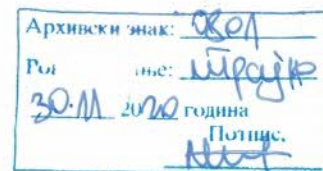 Архивски знак: 0801
Рок        ње: Трајно
30.11 2020 година
Потпис,